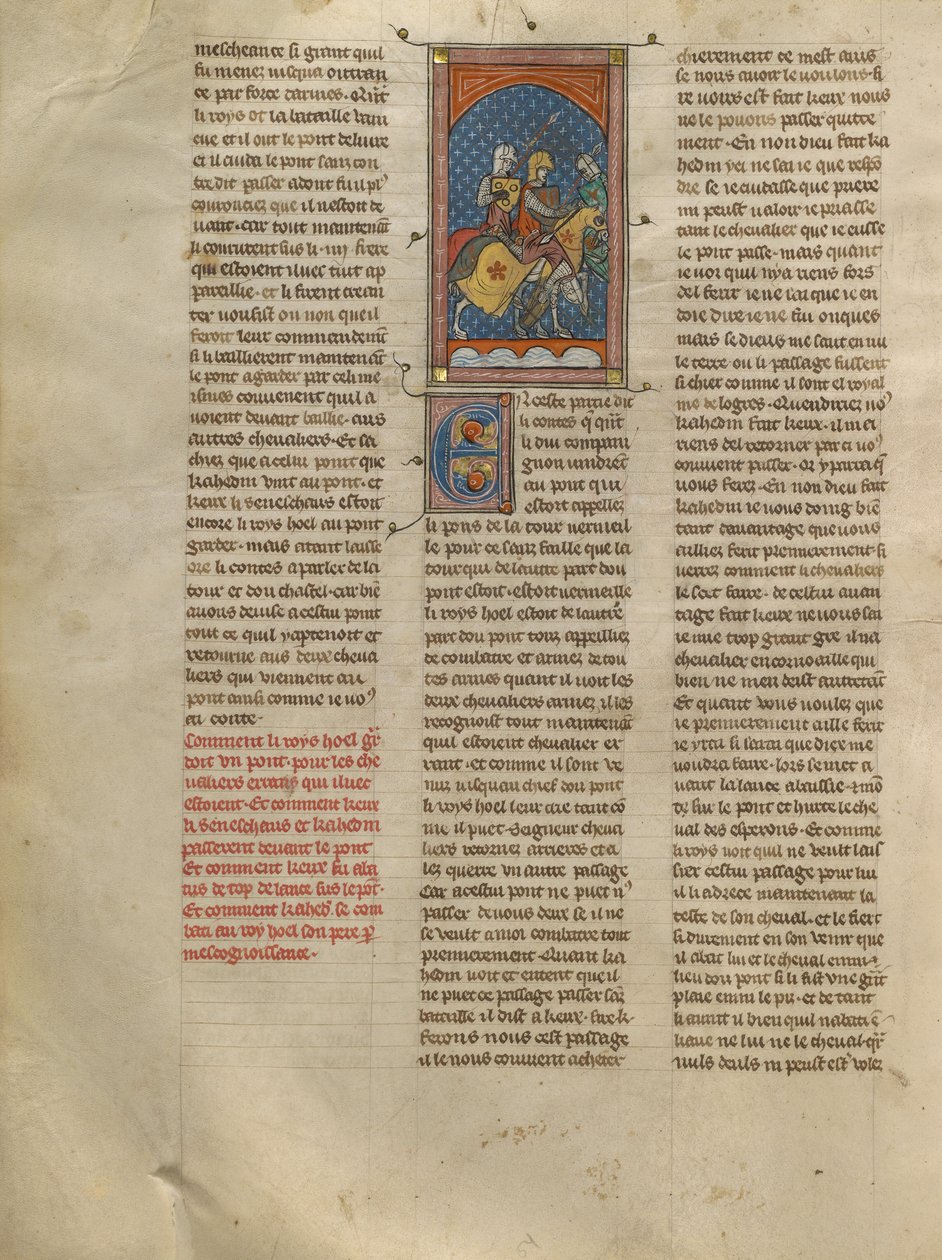 mescheance si grant quil
fu menez iusqua outran
ce par force darmes. Qñt
li roys ot la bataille vain
cue et il out le pont deliure
et il cuida le pont sanz con
tredit passer adont fu il pl
courouciez que il nestoit de
uant. car tout maintenāt
li coururent sus li .iiij. frere
qui estoient iluec tuit ap
pareillie. et li firent crean
ter vousist ou non que il
feroit leur commendemēt
si li baillierent maintenāt
le pont a garder par celi me
ismes couuenent quil a
uoient deuant baillie. aus
autres cheualiers. Et sa
chiez que a celui point que
kahedin vint au pont. et
keux li seneschaus estoit
encore li roys hoel au pont
garder. mais atant laisse
ore li contes a parler de la
tour et dou chastel. car biē
auons deuise a cestui point
tout ce quil y apartenoit et
retourne aus deux cheua
liers qui viennent au
pont ainsi comme ie uoꝰ
ai conte.
Comment li roys hoel gar
doit vn pont. pour les che
ualiers errans qui iluec
estoient. Et comment keux
li seneschaus et kahedin
passerent deuant le pont
Et comment keux fu aba
tus de cop de lance sus le pōt.
Et comment kahedī. se com
bati au roy hoel son pere p̄
mescognoissance.
En ceste partie dit
li contes q̄ qñt
li dui compain
gnon vindrēt
au pont qui
estoit appellez
li pons de la tour vermeil
le pour ce sanz faille que la
tour qui de lautre part dou
pont estoit. estoit vermeille
li roys hoel estoit de lautre
part dou pont touz appeilliez
de combatre et armez de tou
tes armes quant il uoit les
deux cheualiers armez il les
recognoist tout maintenāt
quil estoient cheualier er
rant. et comme il sont ve
nuz iusquau chief dou pont
li roys hoel leur crie tant cō
me il puet. Seigneur cheua
liers retornez arrieres et a
lez querre vn autre passage
Car a cestui pont ne puet nꝰ
passer de uous deux se il ne
se veult a moi combatre tout
premierement. Quant ka
hedin uoit et entent que il
ne puet ce passage passer sāz
bataille il dist a keux. sire k.
ferons nous cest passage
il le nous couuient acheter
chierement ce mest auis
se nous auoir le uoulons. si
re uoirs est fait keux nous
ne le pouons passer quitte
ment. En non dieu fait ka
hedin yci ne sai ie que respō
dre se ie cuidasse que priere
mi peust ualoir ie priasse
tant le cheualier que ie eusse
le pont passe. mais quant
ie uoi quil ny a riens fors
del ferir ie ne sai que ie en
doie dire ie ne fui onques
mais se dieus me saut en nu
le terre ou li passage fussent
si chier comme il sont el royal
me de logres. Quen diriez uoꝰ
kahedin fait keux. il ni a
riens del retorner par ci uoꝰ
couuient passer. or y parra q̄
uous ferez. En non dieu fait
kahedin ie uous doing biē
tant dauantage que uous
ailliez ferir premierement si
uerrez comment li cheualiers
le set faire. de cestui auan
tage fait keux ne uous sai
ie mie trop grant gre il na
cheualier en cornoaille qui
bien ne men deust autretāt
Et quant vous uoulez que
ie premierement aille ferir
ie yrai si sarai que diex me
uoudra faire. lors se met a
uant la lance abaissie. et mō
te sur le pont et hurte le che
ual des esperons. Et comme
li roys uoit quil ne veult lais
sier cestui passage pour lui
il li adrece maintenant la
teste de son cheual. et le fiert
si durement en son venir que
il abat lui et le cheual enmi
lieu dou pont si li fist vne grāt
plaie enmi le piz. et de tant
li auint il bien quil nabati ē
liaue ne lui ne le cheual. qr̄
nuls deuls ni peust estre volez